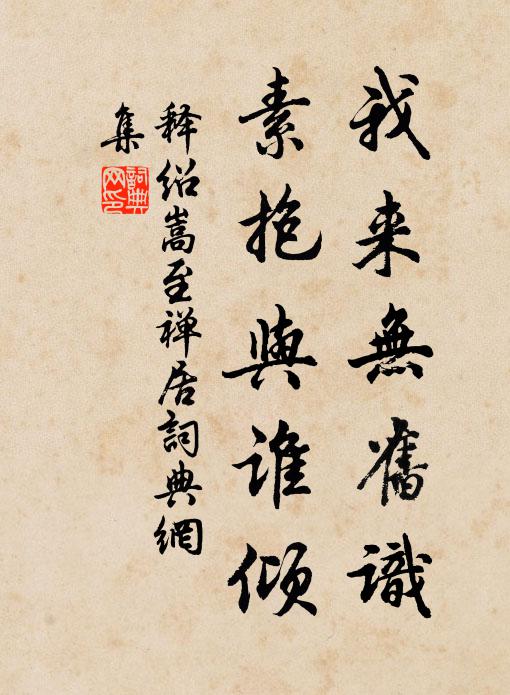 我来無舊識
素抱與誰傾
释绍嵩至禅居詞典網
集
詞典网印